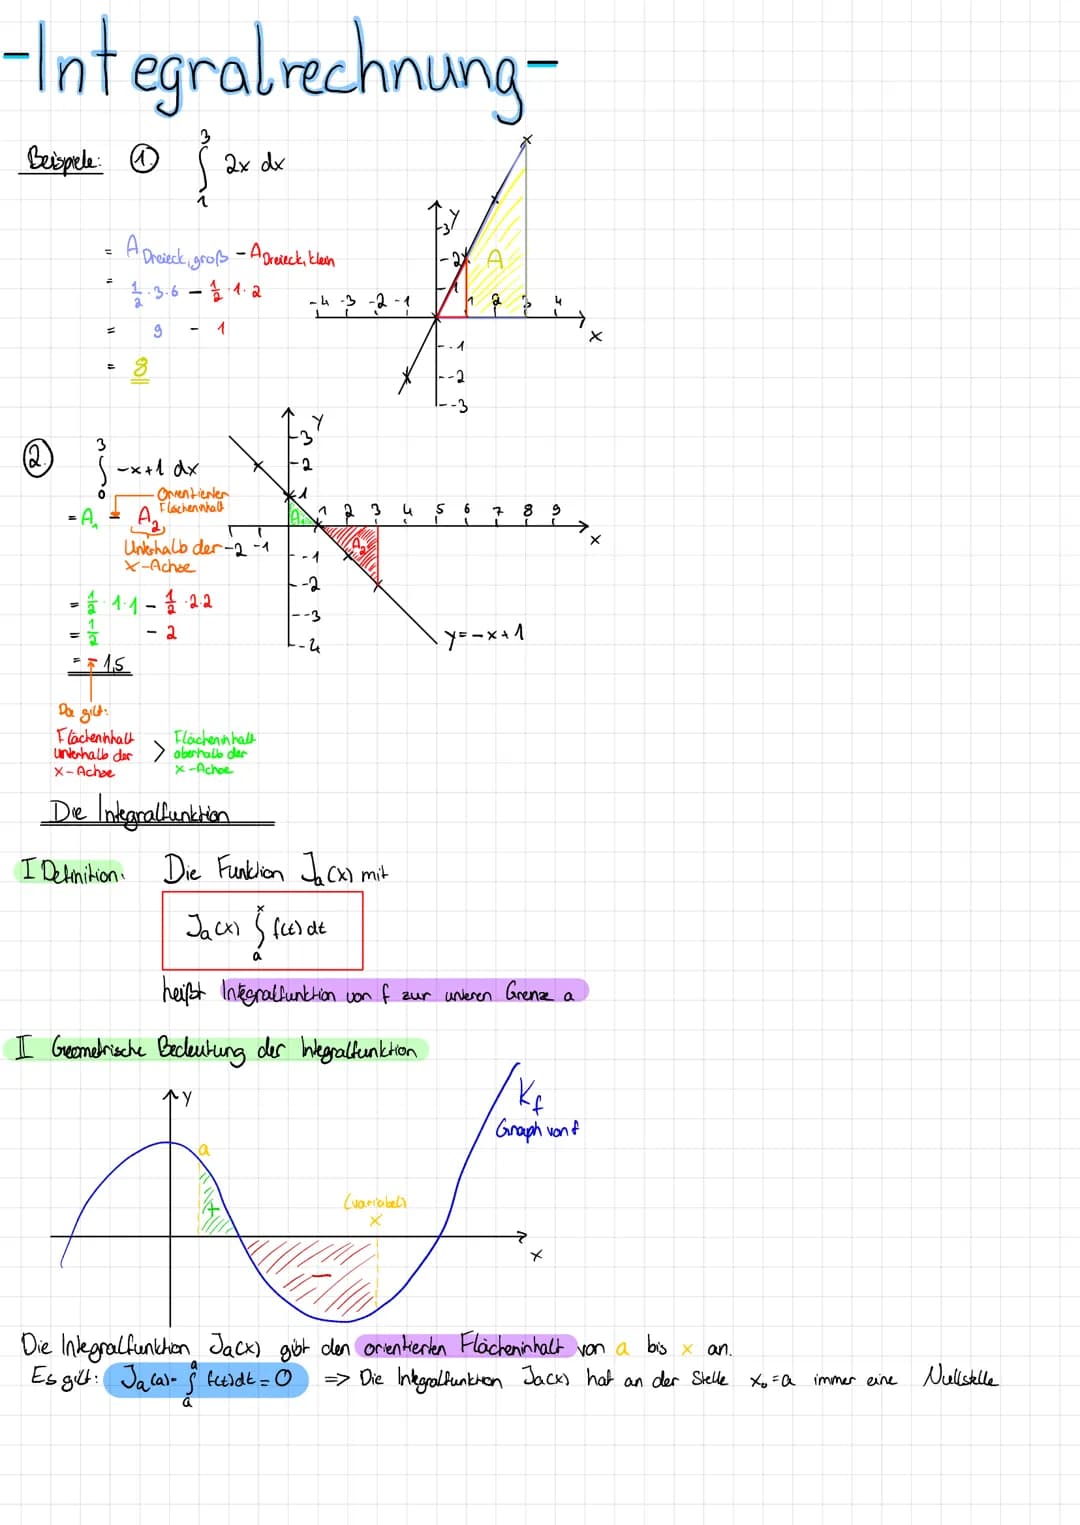 -Integralrechnung-
Beispiele: ① ∫₁³ 2x dx
= A Dreieck, groß - A Dreieck, klein
= 1/2 · 3 · 6 - 1/2 · 1 · 2
= 9 - 1
= 8
y
3
2
1
A
-4 -3 -2 -1 1 2 3 4
x
-1
-2
-3
② ∫₀³ -x+1 dx
= A₁ - A₂
Orientierter Flächeninhalt
Unterhalb der x-Achse
= 1/2 · 1·1 - 1/2 · 2·2
= 1/2 - 2
= -1,5
y
3
2
1
A₁
-2 -1 1 2 3 4 5 6 7 8 9
x
A₂
-1
-2
-3
-4
y=-x+1
Da gilt:
Flächeninhalt unterhalb der x-Achse > Flächeninhalt oberhalb der x-Achse
Die Integralfunktion
I Definition: Die Funktion Jₐ(x) mit
Jₐ(x) ∫ₐˣ f(t) dt
heißt Integralfunktion von f zur unteren Grenze a
II Geometrische Bedeutung der Integralfunktion
y
K_f
Graph von f
a
+
(variabel)
x
-
x
Die Integralfunktion Ja(x) gibt den orientierten Flächeninhalt von a bis x an.
Es gilt: Jₐ(a)= ∫ₐᵃ f(t)dt = 0 => Die Integralfunktion Ja(x) hat an der Stelle x₀=a immer eine Nullstelle